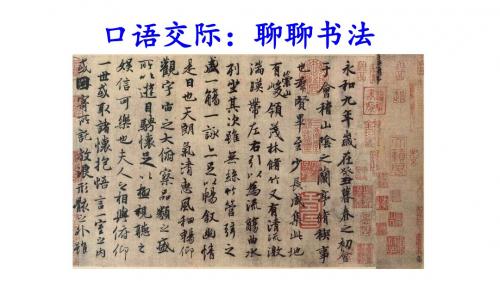 口语交际：聊聊书法
永和九年歲在癸丑暮春之初會
于會稽山陰之蘭亭脩稧事
也群賢畢至少長咸集此地
有崇山峻領茂林脩竹又有清流激
湍暎帶左右引以為流觴曲水
列坐其次雖無絲竹管弦之
盛一觴一詠亦足以暢叙幽情
是日也天朗氣清惠風和暢仰
觀宇宙之大俯察品類之盛
所以遊目騁懷足以極視聽之
娛信可樂也夫人之相與俯仰
一世或取諸懷抱悟言一室之內
或因寄所託放浪形骸之外雖